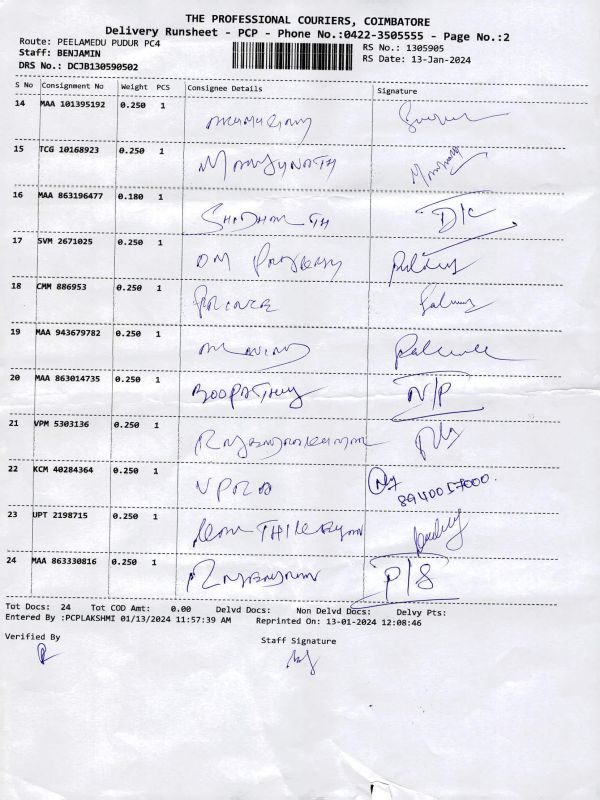 THE PROFESSIONAL COURIERS, COIMBATORE
Delivery Runsheet - PCP - Phone No.:0422-3505555 - Page No.:2
Route: PEELAMEDU PUDUR PC4
RS No.: 1305905
Staff: BENJAMIN
RS Date: 13-Jan-2024
DRS No.: DCJB130590502
S No Consignment No Weight PCS Consignee Details Signature
14 MAA 101395192 0.250 1
15 TCG 10168923 0.250 1 MANJUNATH
16 MAA 863196477 0.180 1 D/C
17 SVM 2671025 0.250 1 OM
18 CMM 886953 0.250 1 PRINCE
19 MAA 943679782 0.250 1
20 MAA 863014735 0.250 1 BOOPATHY N/P
21 VPM 5303136 0.250 1
22 KCM 40284364 0.250 1
8940057000.
23 UPT 2198715 0.250 1
24 MAA 863330816 0.250 1 P/S
Tot Docs: 24 Tot COD Amt: 0.00 Delvd Docs: Non Delvd Docs: Delvy Pts:
Entered By :PCPLAKSHMI 01/13/2024 11:57:39 AM Reprinted On: 13-01-2024 12:08:46
Verified By Staff Signature